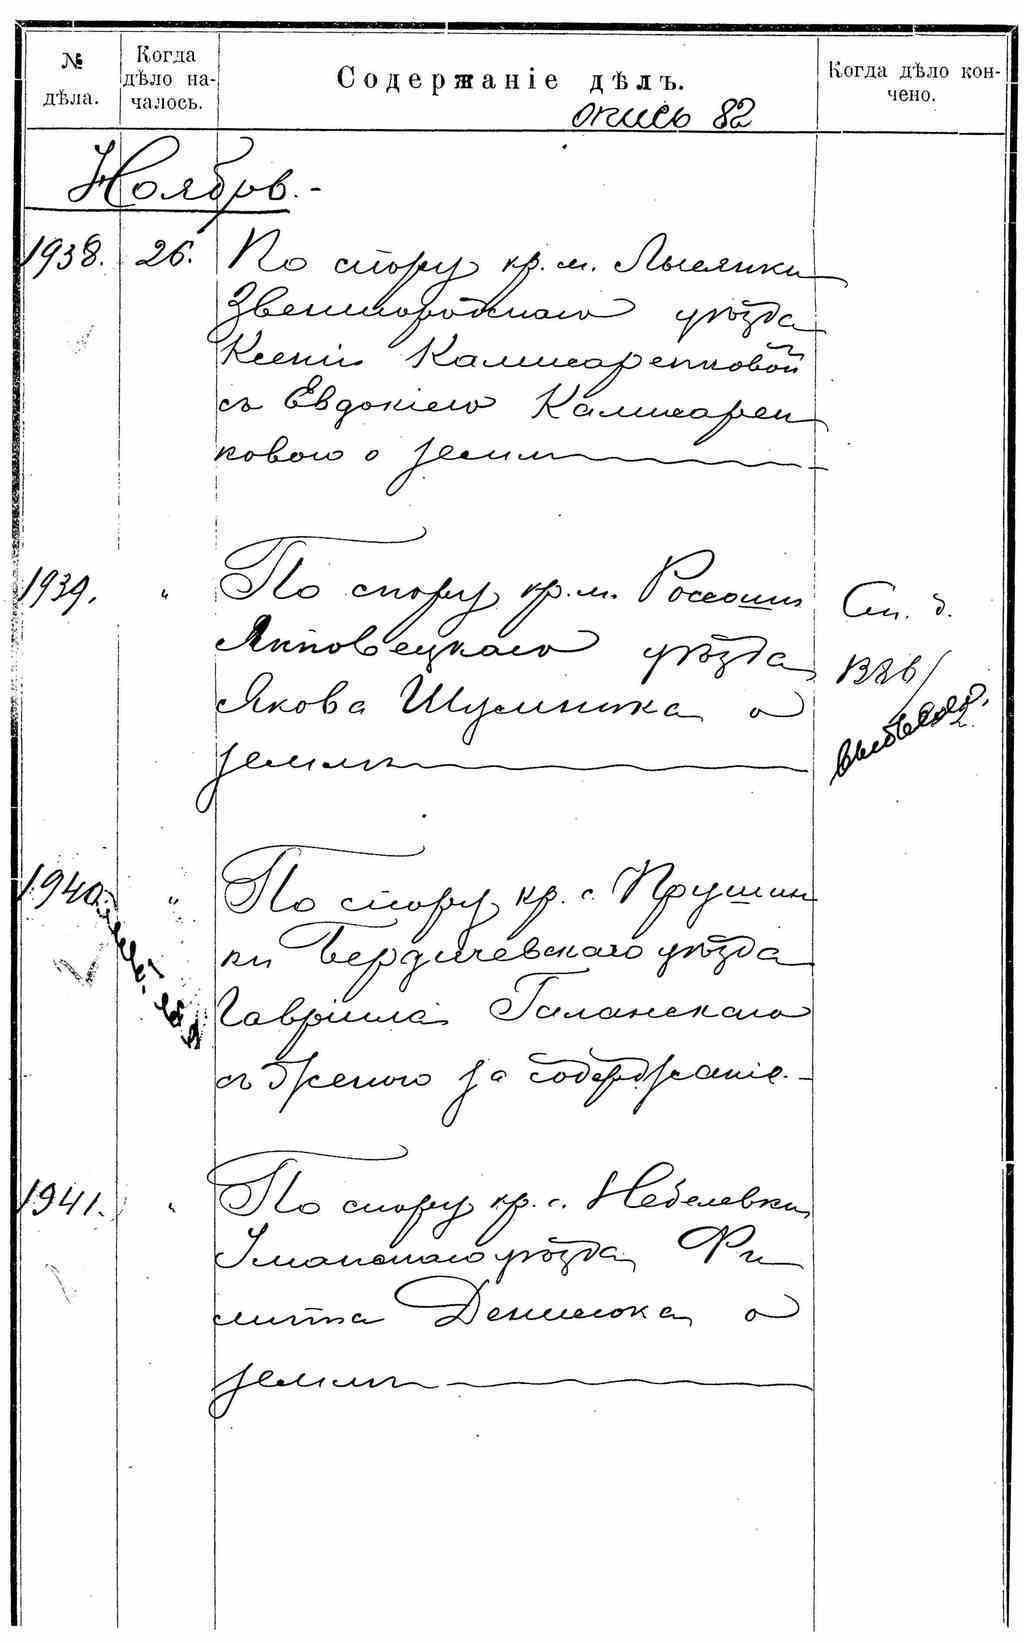 № дѣла.
Когда дѣло на-
чалось.
Содержаніе дѣлъ.
Когда дѣло кон-
чено.
опись 82
Ноябрь.-
1938. 26. По спору кр. м. Лысянки
Звенигородскаго уѣзда
Ксеніи Камисаренковой
съ Евдокіею Камисарен
ковою о землѣ
1939. " По спору кр. м. Россоши
Липовецкаго уѣзда
Якова Шулинка о
землѣ
См. д.
выбыло
1940. " По спору кр. с. Прушин
ки Бердичевскаго уѣзда
Гавріила Галанскаго
съ женою за содержаніе.-
1941. " По спору кр. с. Небелевки
Уманскаго уѣзда Фи
липа Денисюка о
землѣ